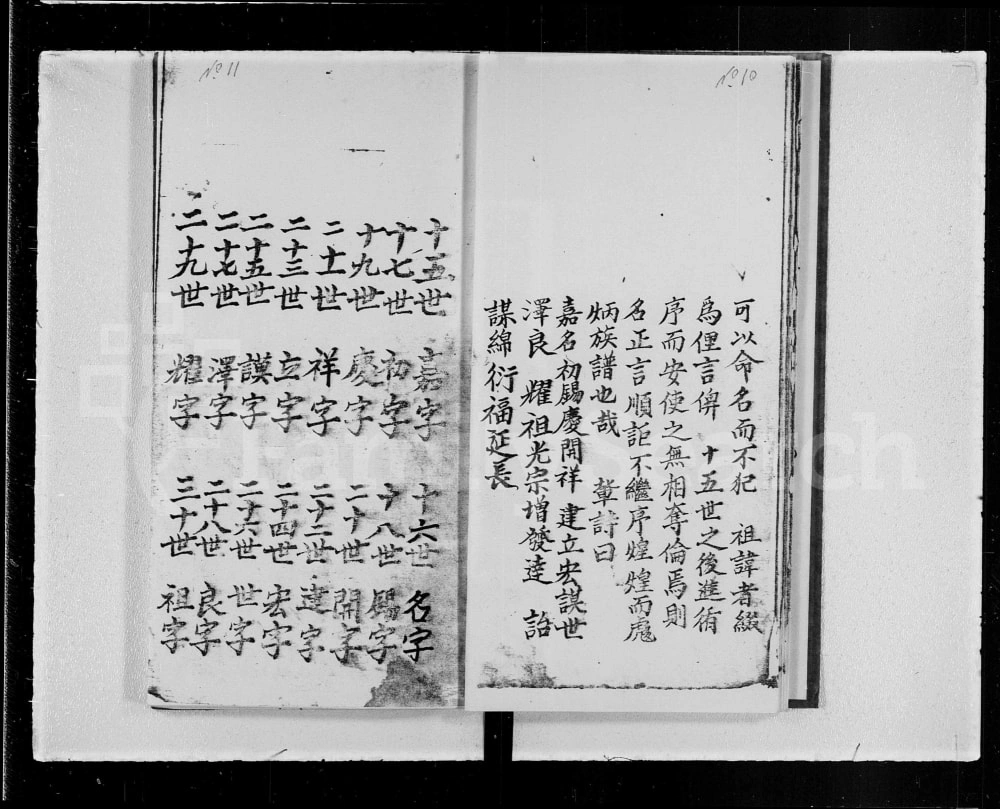 №10
可以命名而不犯　祖諱者綴
爲俚言俾　十五世之後進術
序而安使之無相奪倫焉則
名正言順詎不繼序煌煌而彪
炳族譜也哉　輩詩曰
嘉名初錫慶開祥　建立宏謀世
澤良　耀祖光宗增發達　詒
謀綿衍福延長
№11
十五世　嘉字　十六世　名字
十七世　初字　十八世　錫字
十九世　慶字　二十世　開字
二十一世　祥字　二十二世　建字
二十三世　立字　二十四世　宏字
二十五世　謨字　二十六世　世字
二十七世　澤字　二十八世　良字
二十九世　耀字　三十世　祖字